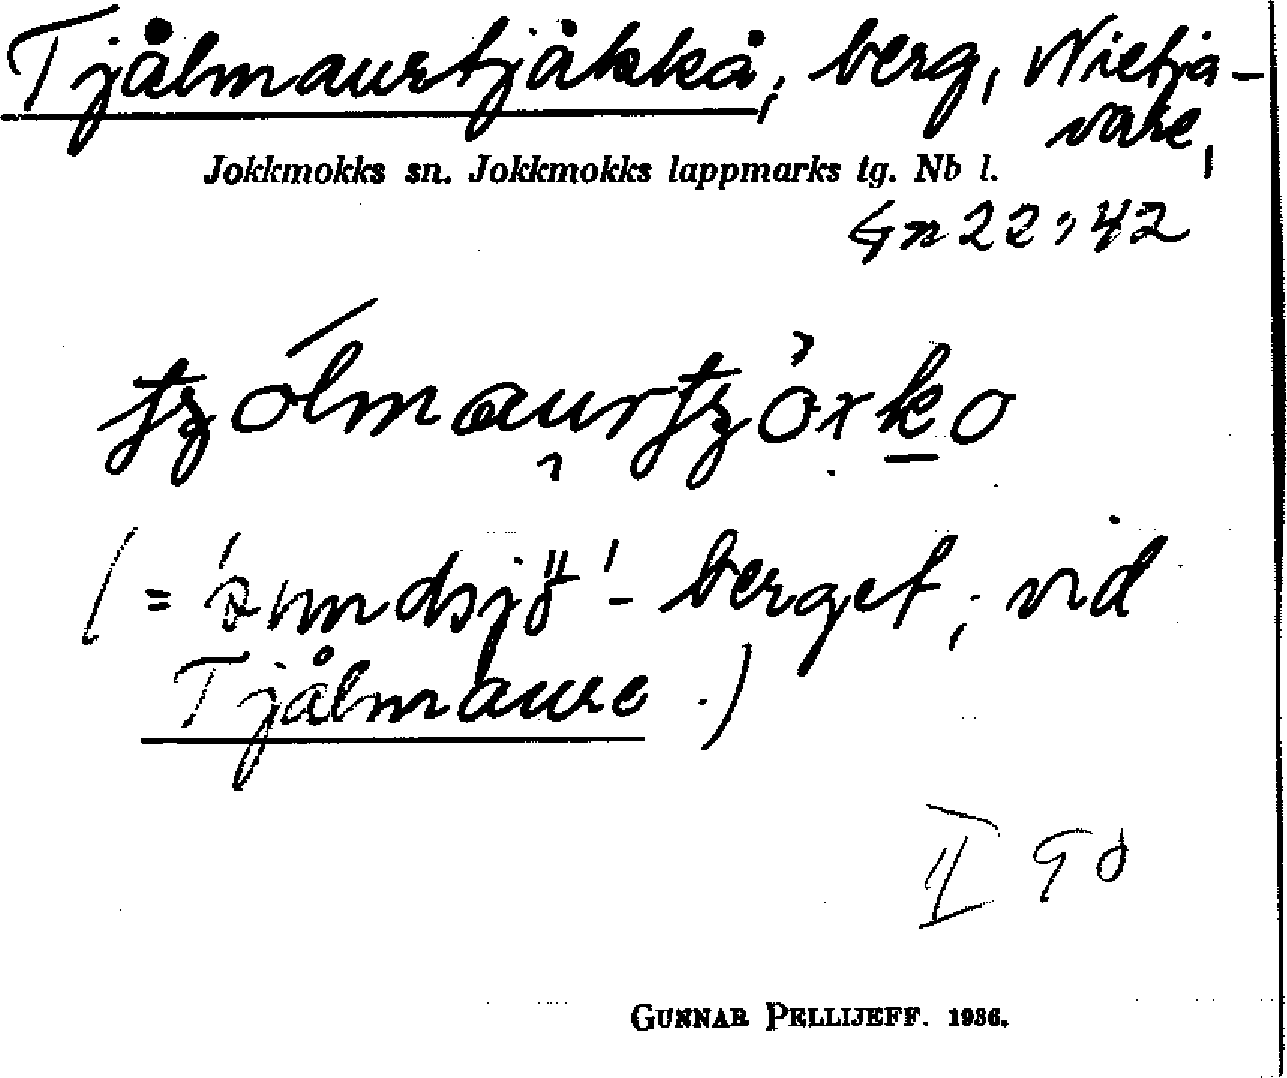 Tjålmaurtjåkkå, berg, Nietja-
vare,
Jokkmokks sn. Jokkmokks lappmarks tg. Nb l.
Gn 22, 42
(= 'sundsjö'-berget, vid
Tjålmaure.)
II
GUNNAR PELLIJEFF. 1936.